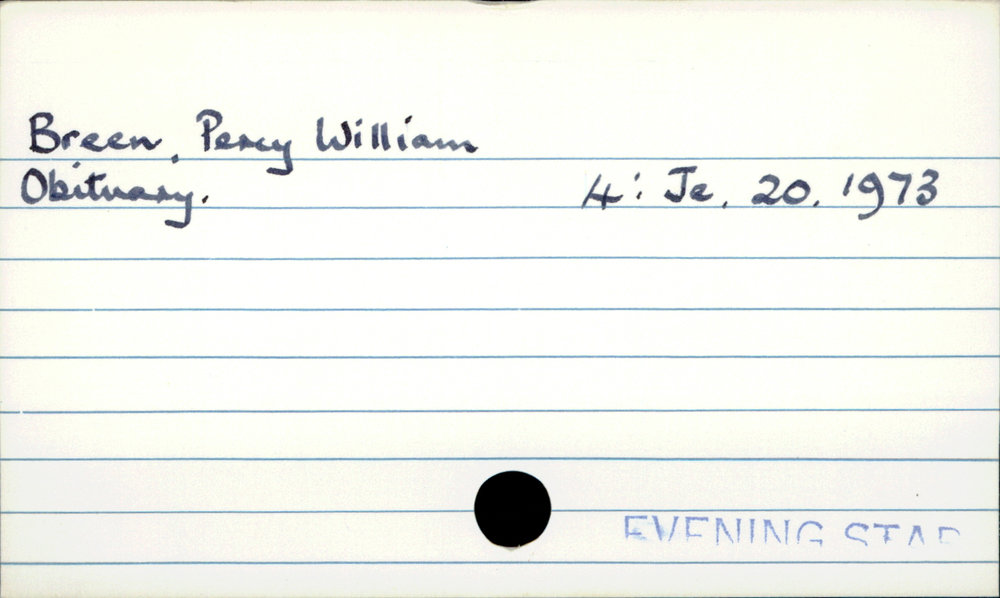 Breen, Percy William
Obituary. 4: Je. 20. 1973
EVENING STAR